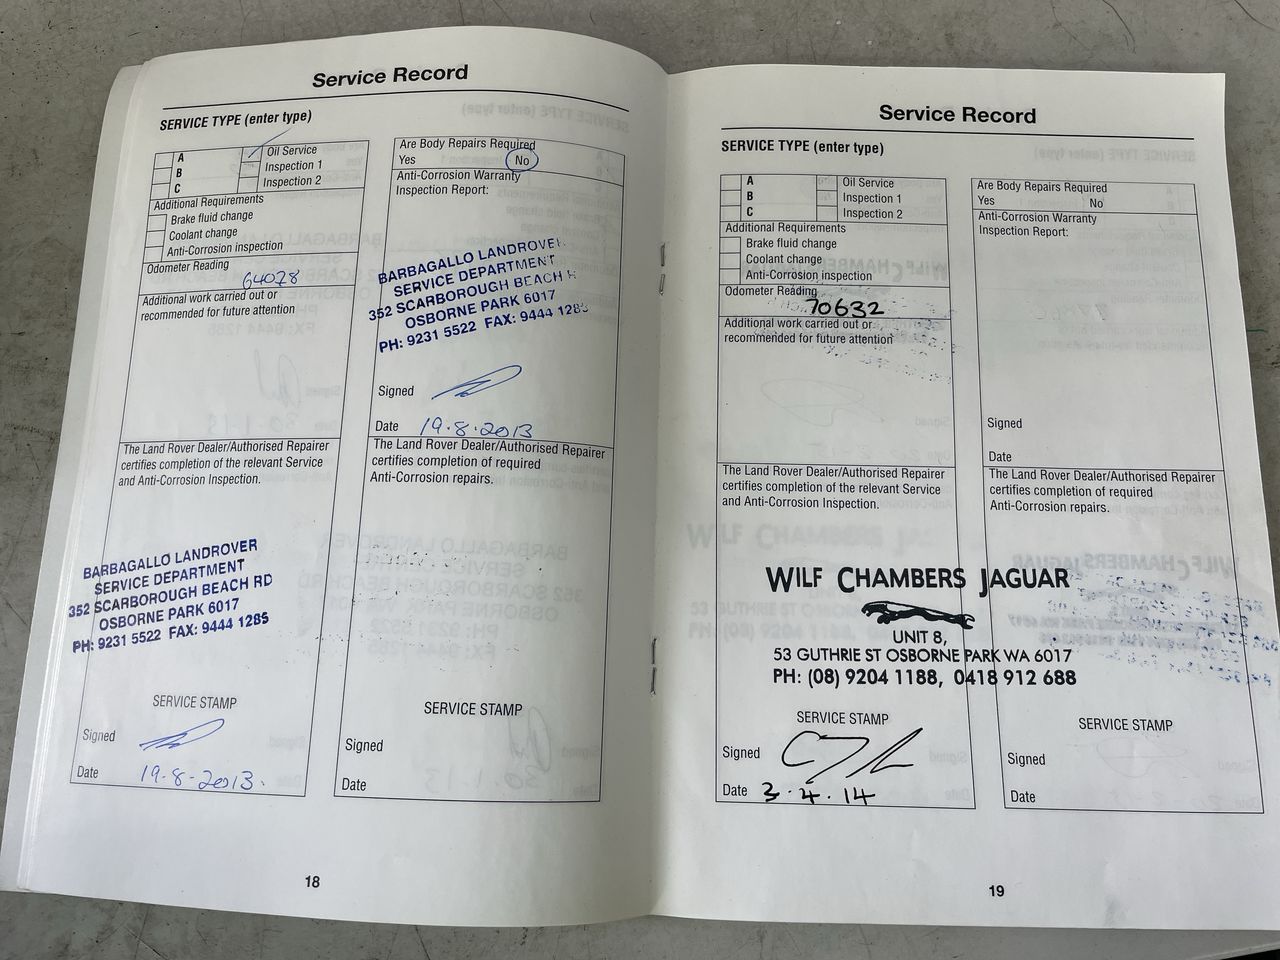 Service Record
SERVICE TYPE (enter type)
A
B
C
Oil Service
Inspection 1
Inspection 2
Additional Requirements
Brake fluid change
Coolant change
Anti-Corrosion inspection
Odometer Reading
64078
Additional work carried out or
recommended for future attention
The Land Rover Dealer/Authorised Repairer
certifies completion of the relevant Service
and Anti-Corrosion Inspection.
BARBAGALLO LANDROVER
SERVICE DEPARTMENT
352 SCARBOROUGH BEACH RD
OSBORNE PARK 6017
PH: 9231 5522 FAX: 9444 1285
SERVICE STAMP
Signed
Date 19-8-2013.
Are Body Repairs Required
Yes No
Anti-Corrosion Warranty
Inspection Report:
BARBAGALLO LANDROVER
SERVICE DEPARTMENT
352 SCARBOROUGH BEACH
OSBORNE PARK 6017
PH: 9231 5522 FAX: 9444 1285
Signed
Date 19.8.2013
The Land Rover Dealer/Authorised Repairer
certifies completion of required
Anti-Corrosion repairs.
SERVICE STAMP
Signed
Date
18
Service Record
SERVICE TYPE (enter type)
A
B
C
Oil Service
Inspection 1
Inspection 2
Additional Requirements
Brake fluid change
Coolant change
Anti-Corrosion inspection
Odometer Reading
70632
Additional work carried out or
recommended for future attention
The Land Rover Dealer/Authorised Repairer
certifies completion of the relevant Service
and Anti-Corrosion Inspection.
WILF CHAMBERS JAGUAR
UNIT 8,
53 GUTHRIE ST OSBORNE PARK WA 6017
PH: (08) 9204 1188, 0418 912 688
SERVICE STAMP
Signed
Date 3.4.14
Are Body Repairs Required
Yes No
Anti-Corrosion Warranty
Inspection Report:
Signed
Date
The Land Rover Dealer/Authorised Repairer
certifies completion of required
Anti-Corrosion repairs.
SERVICE STAMP
Signed
Date
19